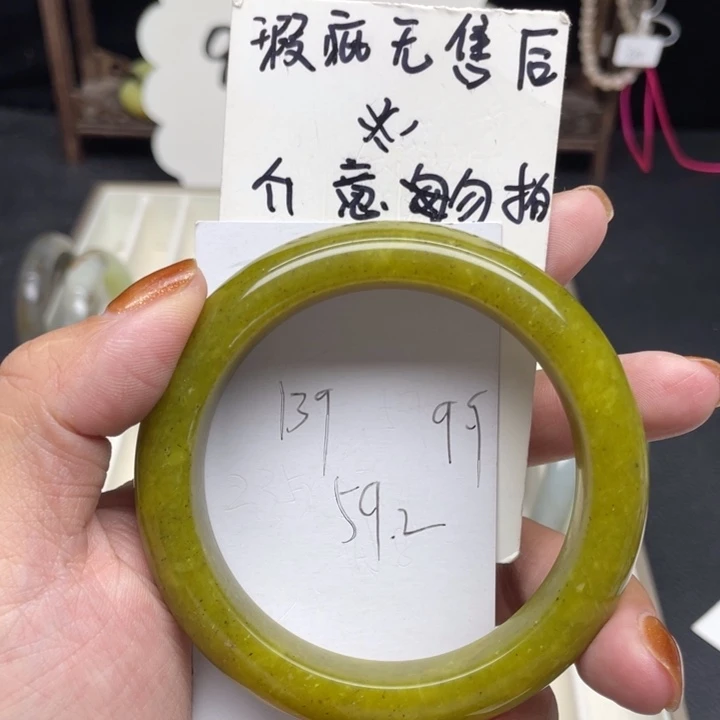 瑕疵无售后
介意勿拍
139 99
59.2